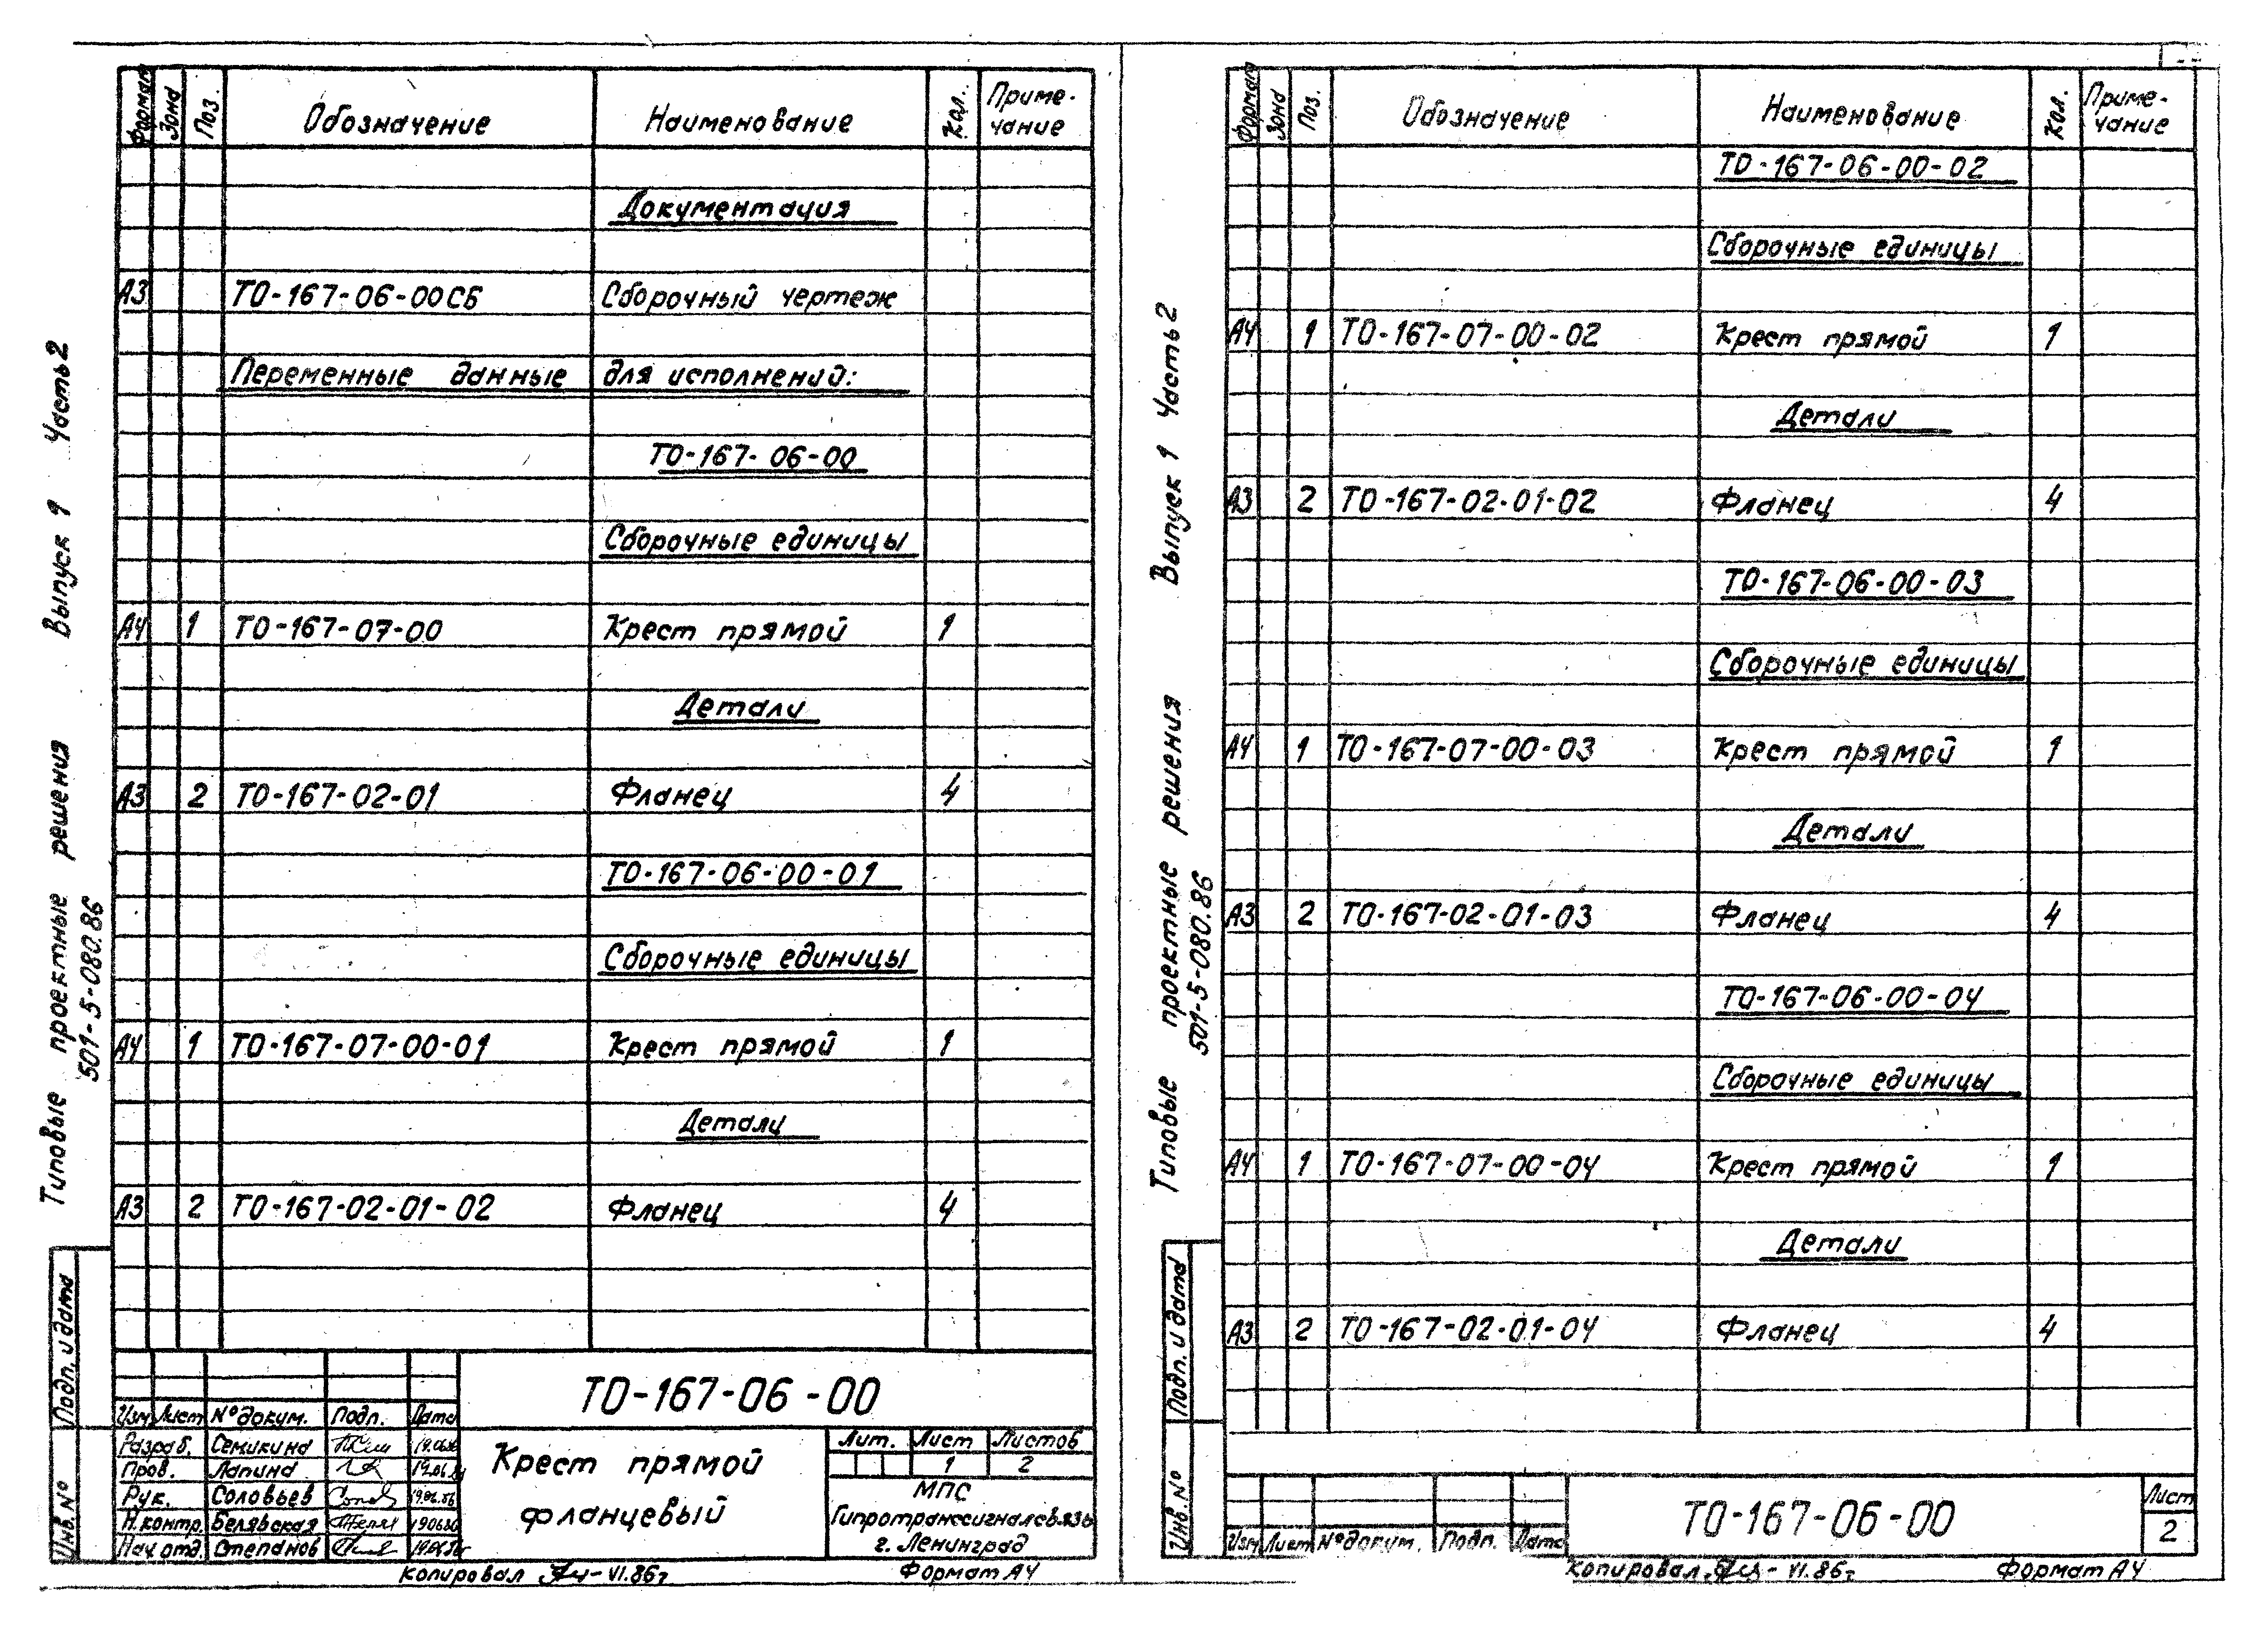 Формат Зона Поз. Обозначение Наименование Кол. Приме-
чание
Документация
А3 ТО-167-06-00СБ Сборочный чертеж
Переменные данные для исполнений:
ТО-167-06-00
Сборочные единицы
А4 1 ТО-167-07-00 Крест прямой 1
Детали
А3 2 ТО-167-02-01 Фланец 4
ТО-167-06-00-01
Сборочные единицы
А4 1 ТО-167-07-00-01 Крест прямой 1
Детали
А3 2 ТО-167-02-01-02 Фланец 4
Типовые проектные решения Выпуск 1 Часть 2
501-5-080.86
Подп. и дата
Инв. №
ТО-167-06-00
Изм Лист № докум. Подп. Дата
Разраб. Семикина
Пров. Лапина
Рук. Соловьев 19.06.86
Н.контр. Белявская 190686
Нач.отд. Степанов
Крест прямой
фланцевый
Лит. Лист Листов
1 2
МПС
Гипротранссигналсвязь
г. Ленинград
Копировал VI.86г Формат А4
Формат Зона Поз. Обозначение Наименование Кол. Приме-
чание
ТО-167-06-00-02
Сборочные единицы
А4 1 ТО-167-07-00-02 Крест прямой 1
Детали
А3 2 ТО-167-02-01-02 Фланец 4
ТО-167-06-00-03
Сборочные единицы
А4 1 ТО-167-07-00-03 Крест прямой 1
Детали
А3 2 ТО-167-02-01-03 Фланец 4
ТО-167-06-00-04
Сборочные единицы
А4 1 ТО-167-07-00-04 Крест прямой 1
Детали
А3 2 ТО-167-02-01-04 Фланец 4
Типовые проектные решения Выпуск 1 Часть 2
501-5-080.86
Подп. и дата
Инв. №
Изм Лист № докум. Подп. Дата
ТО-167-06-00
Лист
2
Копировал VI.86г Формат А4